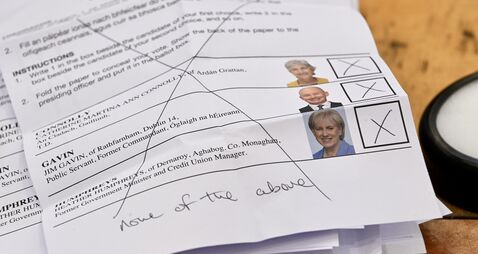 2. Fill an páipéar ionas nach bhfeicfear do
INSTRUCTIONS
1. Write 1 in the box beside the candidate of your first choice, write 2 in the
box beside the candidate of your second choice, and so on.
2. Fold the paper to conceal your vote. Show the back of the paper to the
presiding officer and put it in the ballot box.
CONNOLLY
CATHERINE MARTINA ANN CONNOLLY, of Ardán Grattan,
An Cladach, Gaillimh.
T.D.
GAVIN
JIM GAVIN, of Rathfarnham, Dublin 14,
Public Servant, Former Commandant, Óglaigh na hÉireann.
HUMPHREYS
HEATHER HUMPHREYS, of Dernaroy, Aghabog, Co. Monaghan,
Former Government Minister and Credit Union Manager.
X
X
X
none of the above